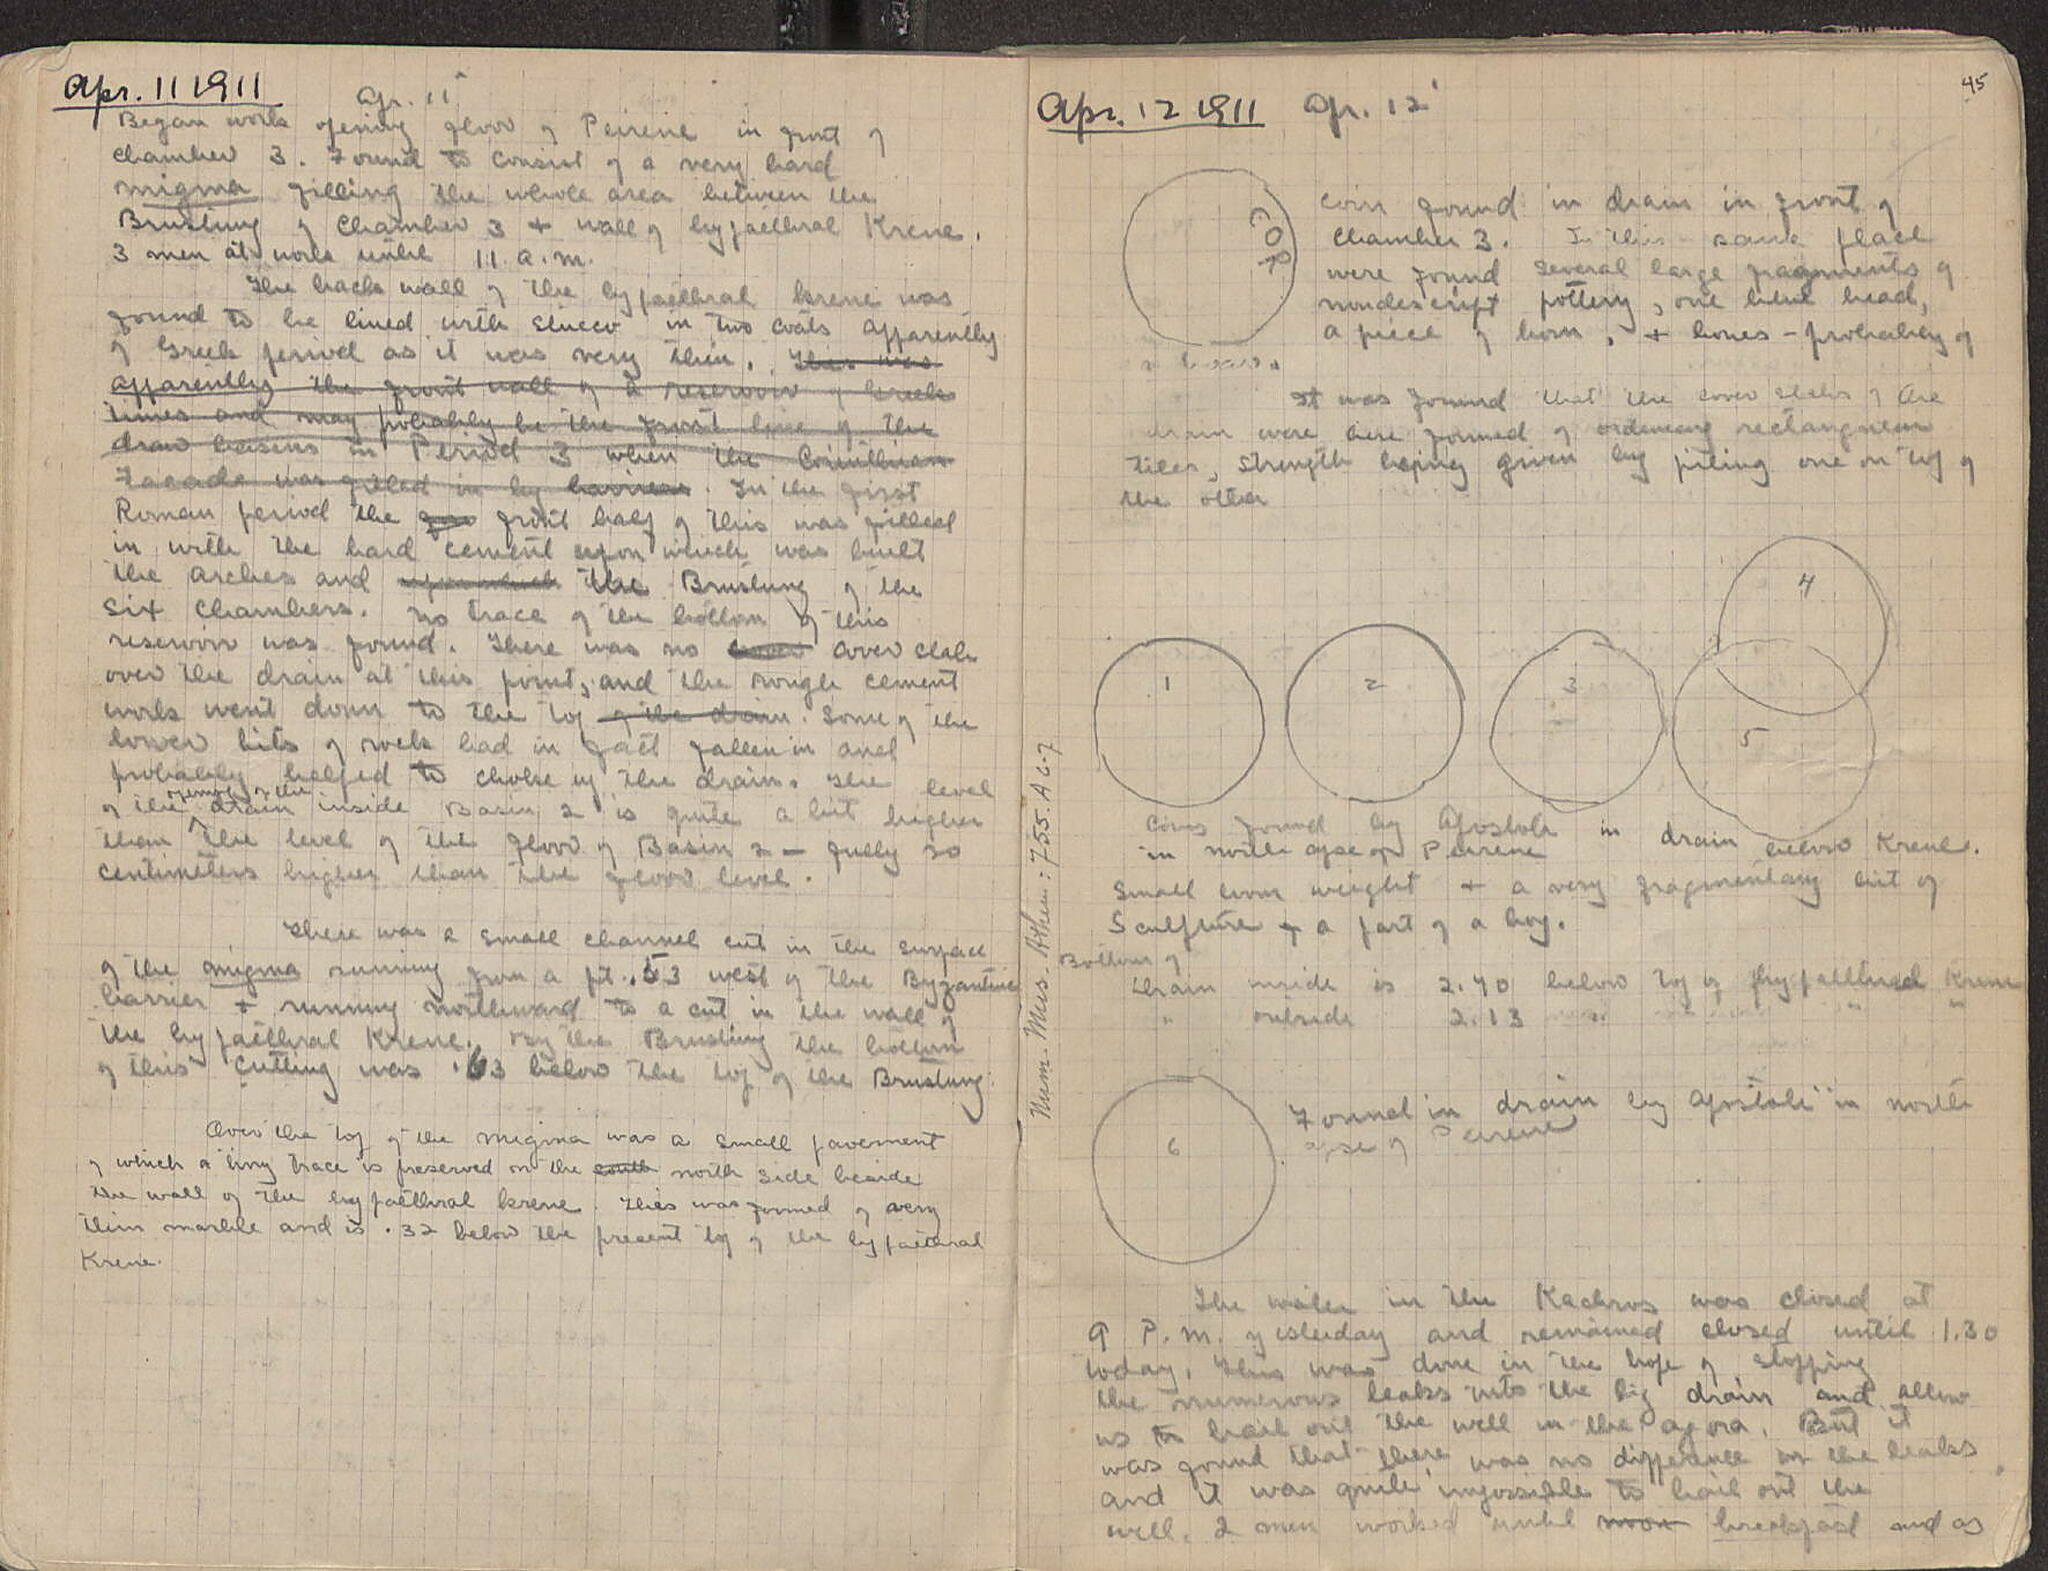 Apr. 11 1911
Apr. 11
Began work opening floor of Peirene in front of
chamber 3. Found to consist of a very hard
migma filling the whole area between the
Brustung of Chamber 3 + wall of hypaethral Krene.
3 men at work until 11 a.m.
The back wall of the hypaethral krene was
found to be lined with stucco in two coats apparently
of Greek period as it was very thin. This was
apparently the front wall of a reservoir of Greek
times and may probably be the front line of the
draw basins in Period 3 when the Corinthian
Facade was filled in by barriers. In the first
Roman period the front half of this was filled
in with the hard cement upon which was built
the arches and upon which the Brustung of the
six chambers. No trace of the bottom of this
reservoir was found. There was no cover slab
over the drain at this point, and the rough cement
work went down to the top of the drain. Some of the
lower bits of rock had in fact fallen in and
probably helped to choke up the drain. The level
of the opening of the drain inside Basin 2 is quite a bit higher
than the level of the floor of Basin 2 – fully 20
centimeters higher than the floor level.
There was a small channel cut in the surface
of the migma running from a pt. .53 west of the Byzantine
barrier + running northward to a cut in the wall of
the hypaethral Krene. By the Brustung the bottom
of this cutting was .63 below the top of the Brustung.
Over the top of the migma was a small pavement
of which a tiny trace is preserved on the south north side beside
the wall of the hypaethral krene. This was formed of very
thin marble and is .32 below the present top of the hypaethral
Krene.
45
Apr. 12 1911 Apr. 12
COP
coin found in drain in front of
chamber 3. In this same place
were found several large fragments of
nondescript pottery, one blue bead,
a piece of horn, + bones – probably of
It was found that the cover slabs of the
drain were here formed of ordinary rectangular
tiles, strength being given by piling one on top of
the other
4
1 2 3
5
Coins found by Apostoli in drain below Krene.
in north apse of Peirene
Small loom weight + a very fragmentary bit of
Sculpture of a part of a boy.
Bottom of
Drain inside is 2.40 below top of hypaethral Krene
" outside 2.13 " " "
Num. Mus. Athen: 755. A 6-7
6
Found in drain by Apostoli in north
apse of Peirene
The water in the Kachros was closed at
9 P.M. yesterday and remained closed until 1.30
today. This was done in the hope of stopping
the numerous leaks into the big drain and allow
us to bail out the well in the agora. But it
was found that there was no difference in the leaks
and it was quite impossible to bail out the
well. 2 men worked until noon breakfast and as